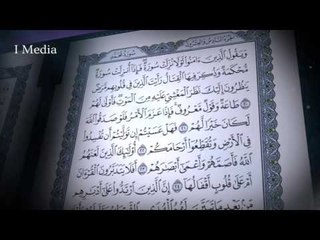 I Media
وَيَقُولُ ٱلَّذِينَ ءَامَنُوا۟ لَوْلَا نُزِّلَتْ سُورَةٌ فَإِذَآ أُنزِلَتْ سُورَةٌ
مُّحْكَمَةٌ وَذُكِرَ فِيهَا ٱلْقِتَالُ رَأَيْتَ ٱلَّذِينَ فِى قُلُوبِهِم مَّرَضٌ
يَنظُرُونَ إِلَيْكَ نَظَرَ ٱلْمَغْشِىِّ عَلَيْهِ مِنَ ٱلْمَوْتِ فَأَوْلَىٰ لَهُمْ
٢٠ طَاعَةٌ وَقَوْلٌ مَّعْرُوفٌ فَإِذَا عَزَمَ ٱلْأَمْرُ فَلَوْ صَدَقُوا۟ ٱللَّهَ
لَكَانَ خَيْرًا لَّهُمْ ٢١ فَهَلْ عَسَيْتُمْ إِن تَوَلَّيْتُمْ أَن تُفْسِدُوا۟
فِى ٱلْأَرْضِ وَتُقَطِّعُوٓا۟ أَرْحَامَكُمْ ٢٢ أُو۟لَٰٓئِكَ ٱلَّذِينَ لَعَنَهُمُ
ٱللَّهُ فَأَصَمَّهُمْ وَأَعْمَىٰٓ أَبْصَٰرَهُمْ ٢٣ أَفَلَا يَتَدَبَّرُونَ ٱلْقُرْءَانَ
أَمْ عَلَىٰ قُلُوبٍ أَقْفَالُهَآ ٢٤ إِنَّ ٱلَّذِينَ ٱرْتَدُّوا۟ عَلَىٰٓ أَدْبَٰرِهِم
مِّنۢ بَعْدِ مَا تَبَيَّنَ